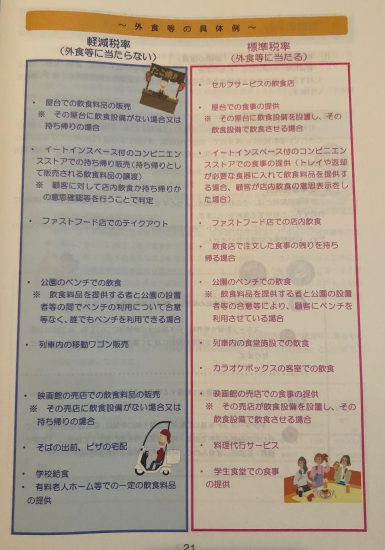 ～ 外食等の具体例 ～
軽減税率
（外食等に当たらない）
たこ焼き
・ 屋台での飲食料品の販売
※ その屋台に飲食設備がない場合又は
持ち帰りの場合
・ イートインスペース付のコンビニエン
スストアでの持ち帰り販売（持ち帰りとし
て販売される飲食料品の譲渡）
※ 顧客に対して店内飲食か持ち帰りか
の意思確認等を行うことで判定
・ ファストフード店でのテイクアウト
・ 公園のベンチでの飲食
※ 飲食料品を提供する者と公園の設置
者等の間でベンチの利用について合意
等なく、誰でもベンチを利用できる場合
・ 列車内の移動ワゴン販売
・ 映画館の売店での飲食料品の販売
※ その売店に飲食設備がない場合又は
持ち帰りの場合
・ そばの出前、ピザの宅配
・ 学校給食
・ 有料老人ホーム等での一定の飲食料品
の提供
標準税率
（外食等に当たる）
・ セルフサービスの飲食店
・ 屋台での食事の提供
※ その屋台に飲食設備を設置し、その
飲食設備で飲食させる場合
・ イートインスペース付のコンビニエン
スストアでの食事の提供（トレイや返却
が必要な食器に入れて飲食料品を提供す
る場合、顧客が店内飲食の意思表示をし
た場合）
・ ファストフード店での店内飲食
・ 飲食店で注文した食事の残りを持ち
帰る場合
・ 公園のベンチでの飲食
※ 飲食料品を提供する者と公園の設置
者等の合意等により、顧客にベンチを
利用させている場合
・ 列車内の食堂施設での飲食
・ カラオケボックスの客室での飲食
・ 映画館の売店での食事の提供
※ その売店が飲食設備を設置し、その
飲食設備で飲食させる場合
・ 料理代行サービス
・ 学生食堂での食事
の提供
21